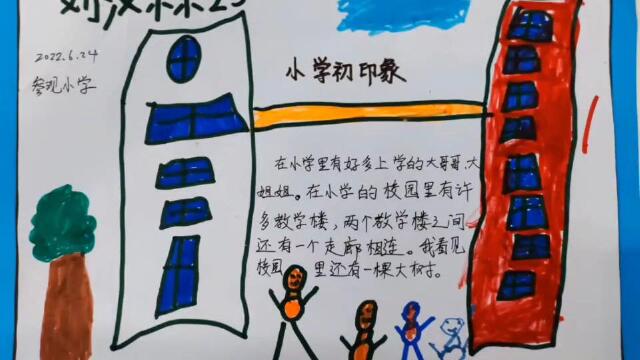 2022.6.24
参观小学
小学初印象
在小学里有好多上学的大哥哥、大
姐姐。在小学的校园里有许
多教学楼，两个教学楼之间
还有一个走廊相连。我看见
校园里还有一棵大树。